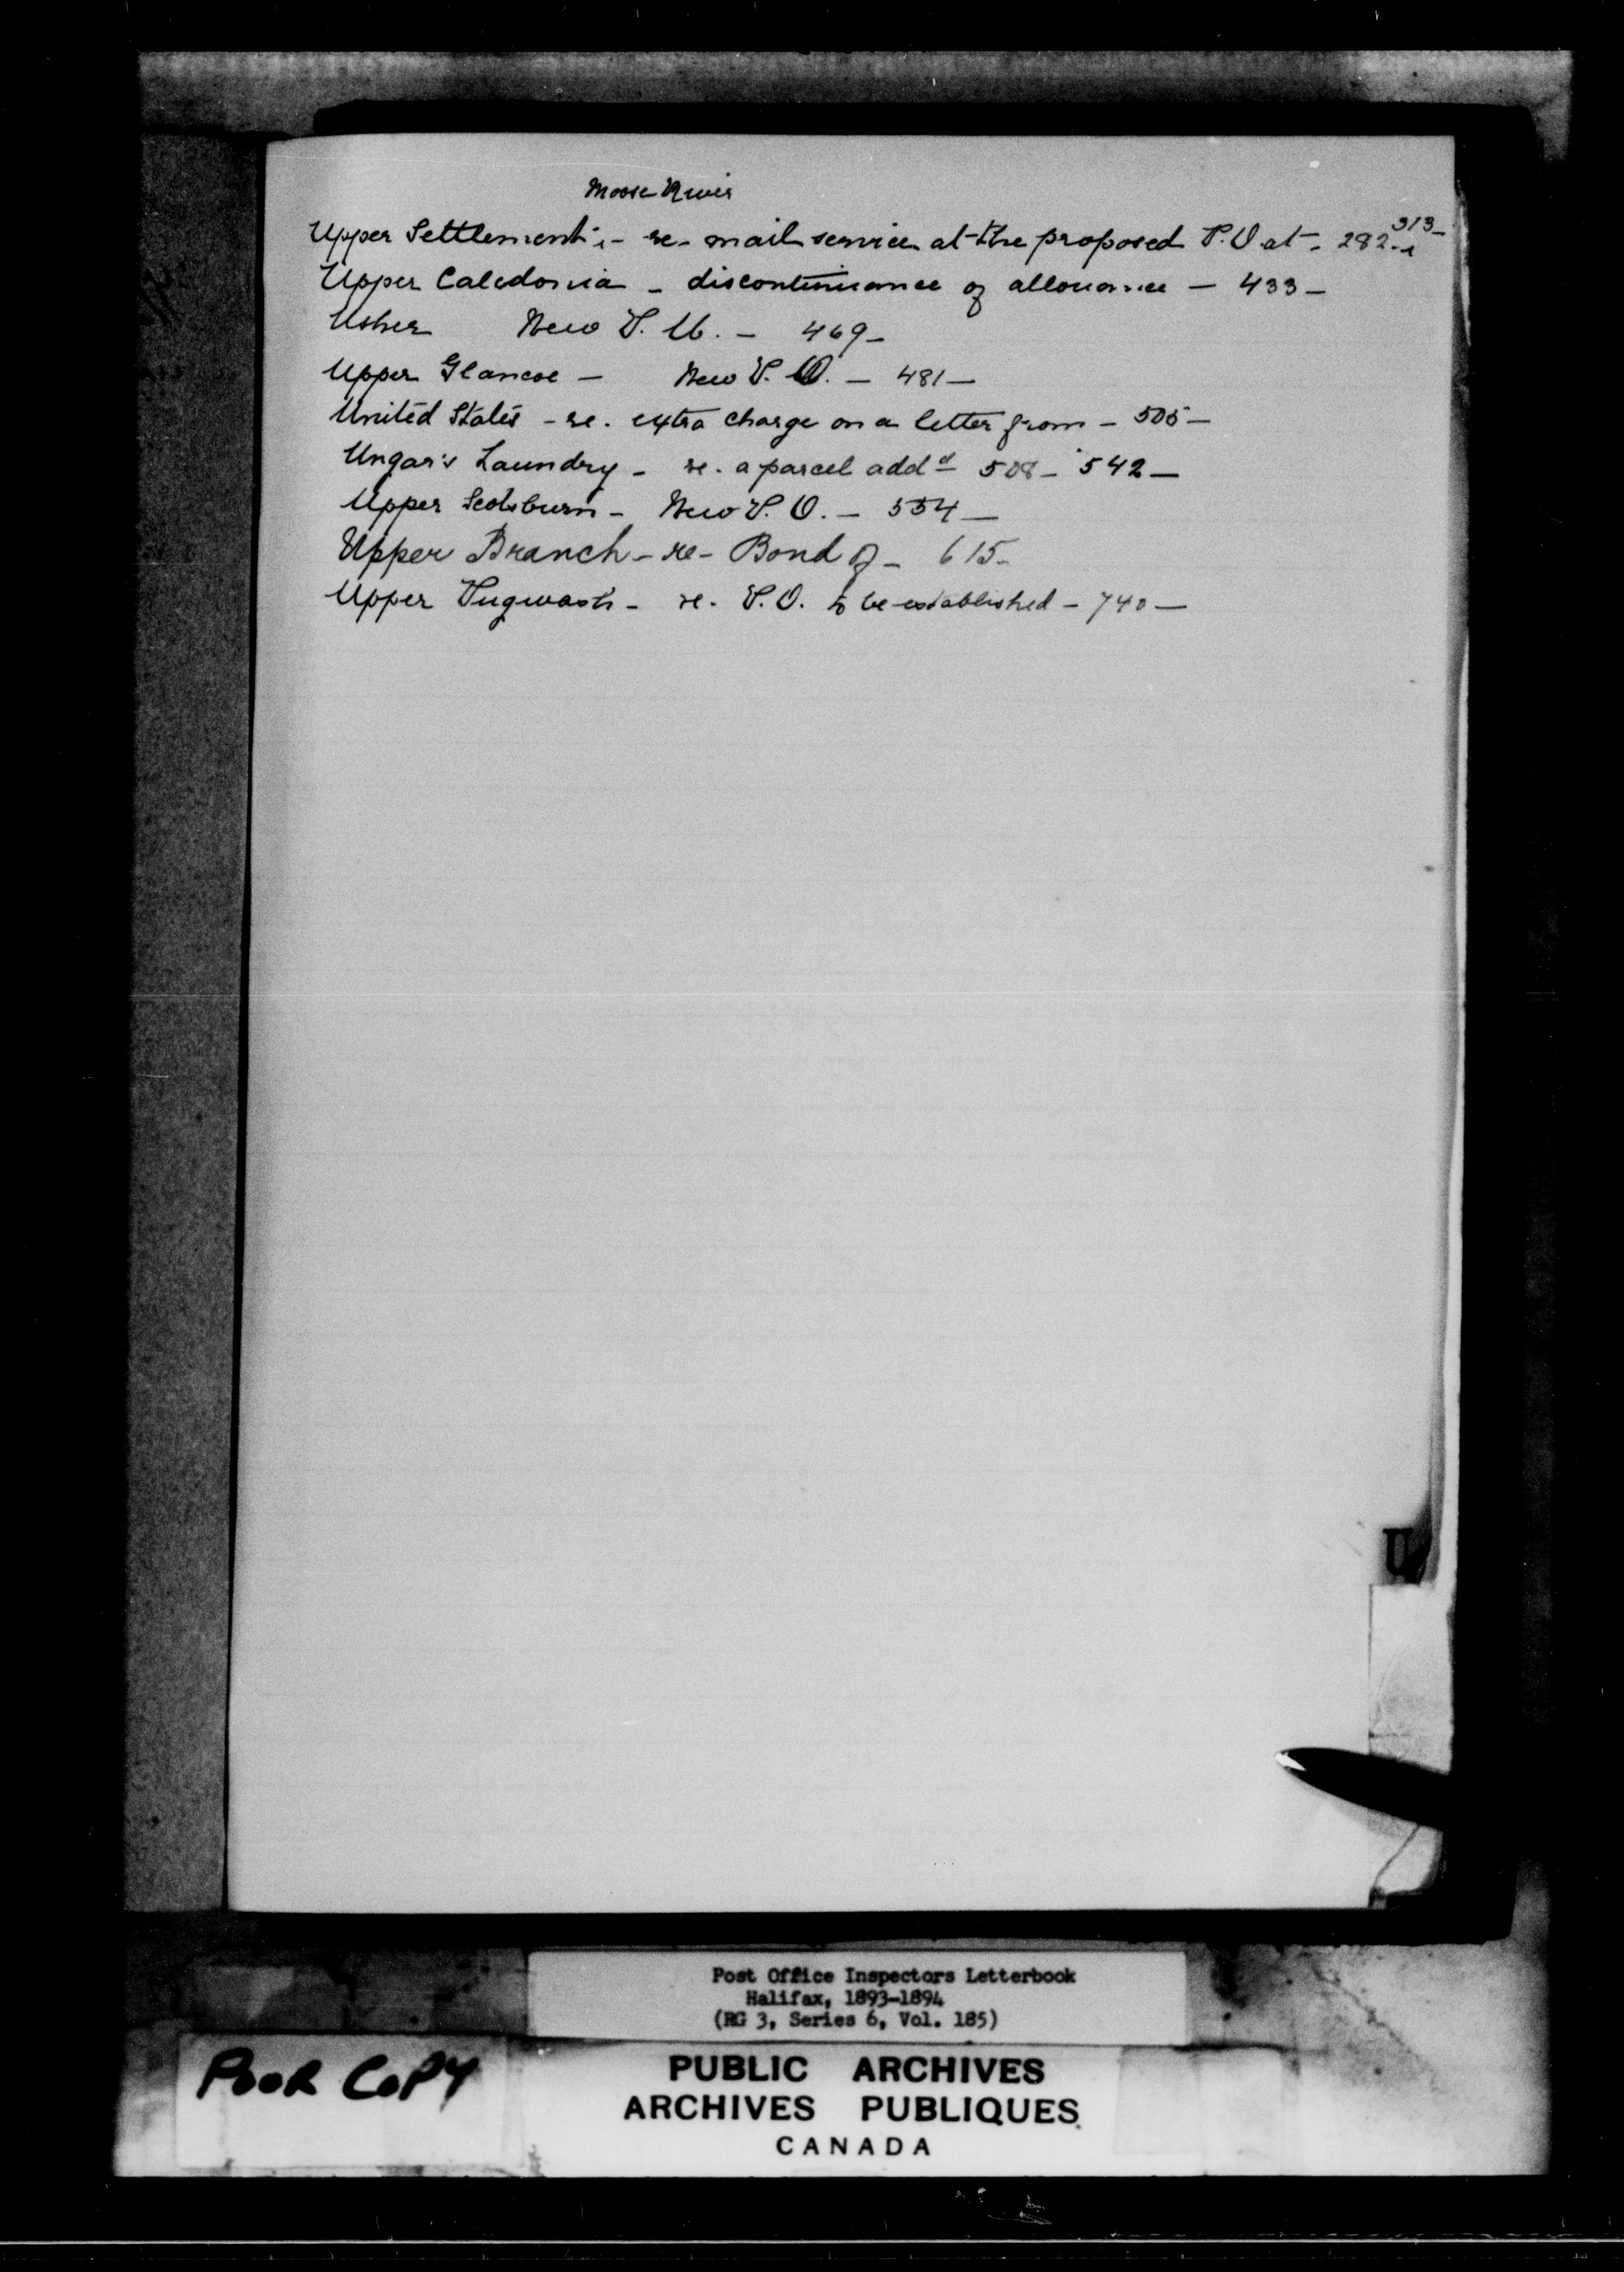 Moose River
Upper Settlement - re - mail service at the proposed P.O at - 282 - 313 -
Upper Caledonia - discontinuance of allowance - 433 -
Usher New P. O. - 469 -
Upper Glancoe - New P. O. - 481 -
United States - re. extra charge on a letter from - 505 -
Ungar's Laundry - re. a parcel add^d 508 - 542 -
Upper Scotsburn - New P. O. - 554 -
Upper Branch - re - Bond of - 615 -
Upper Pugwash - re. P.O. to be established - 740 -
U
Post Office Inspectors Letterbook
Halifax, 1893-1894
(RG 3, Series 6, Vol. 185)
POOR COPY
PUBLIC ARCHIVES
ARCHIVES PUBLIQUES
CANADA